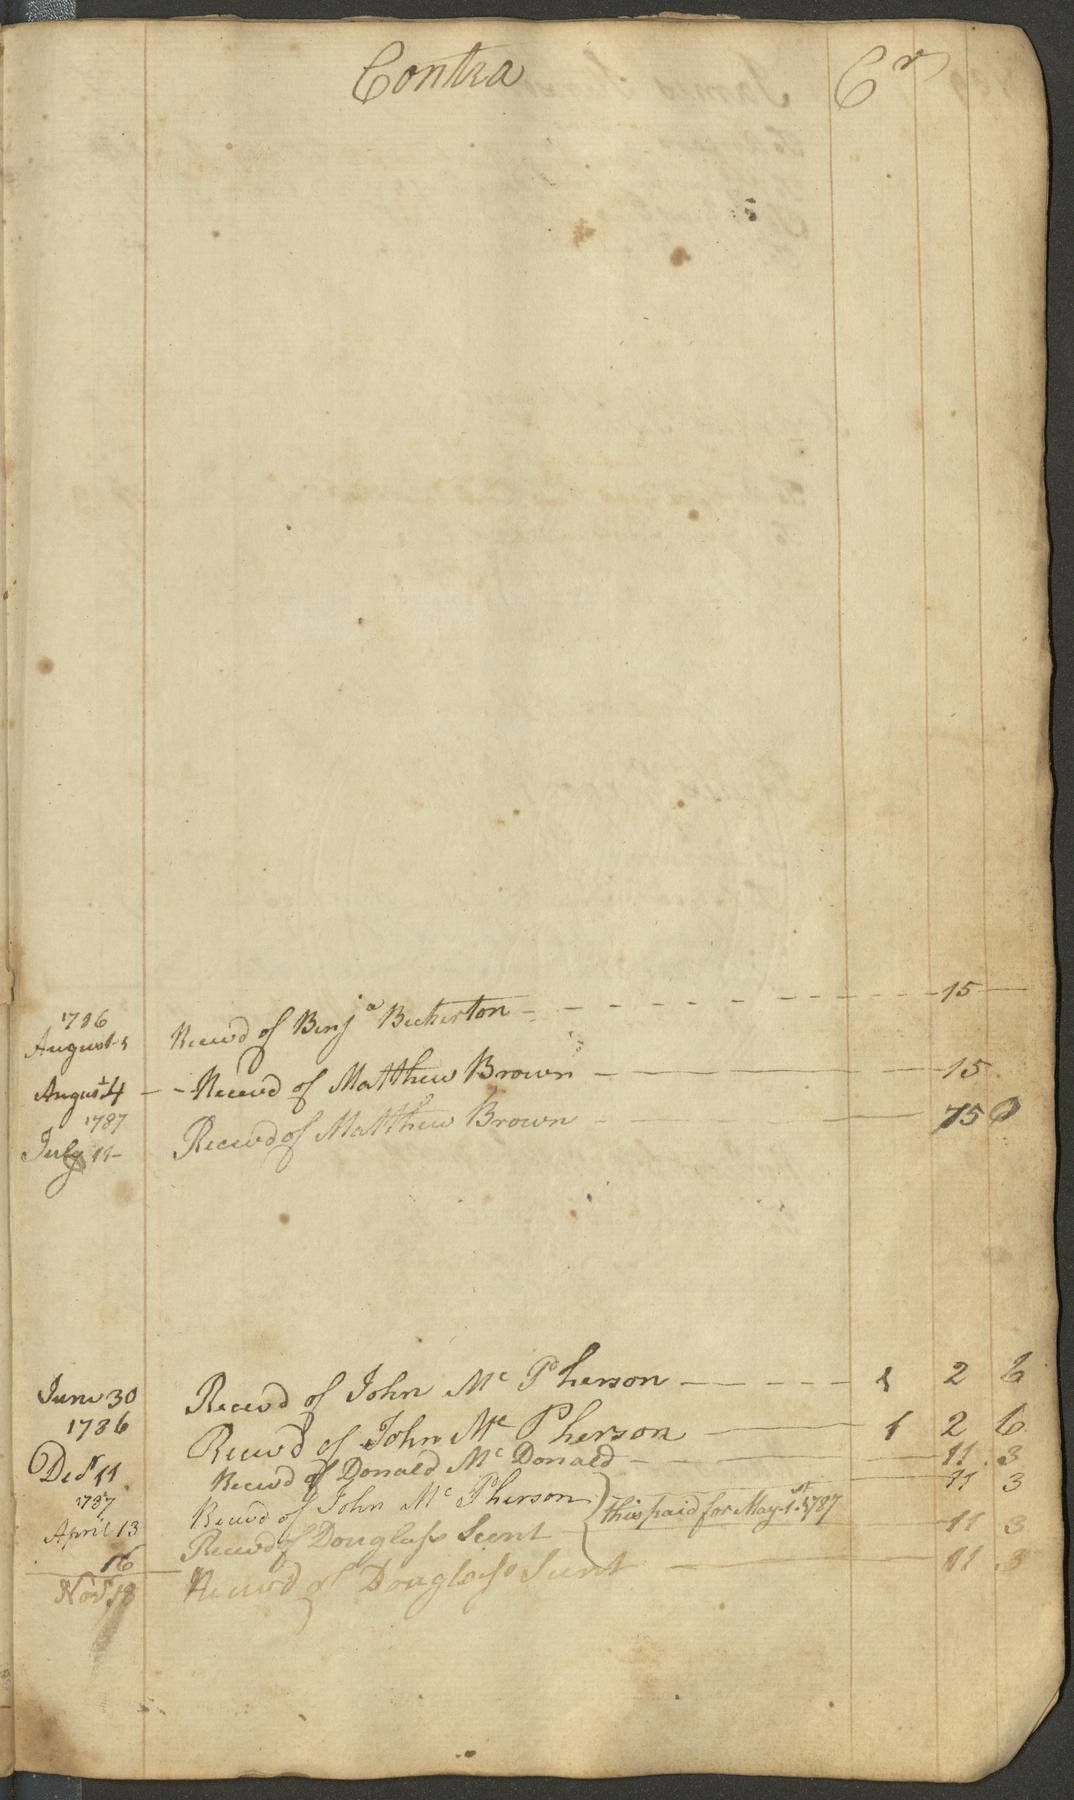 Contra Cr
1786
August 5 Receivd of Benja Bickerton 15
Augus 4 Receivd of Matthew Brown 15
1787
July 11 Receivd of Matthew Brown 75 0
June 30 Receivd of John Mc Pherson 1 2 6
1786 Receivd of John Mc Pherson 1 2 6
Decr 11 Receivd of Donald Mc Donald 11 3
1787
April 13 Receivd of John Mc Pherson this paid for May 1st 1787 11 3
16 Receivd of Douglass 11 3
Novr 18 Receivd of Douglass 11 3